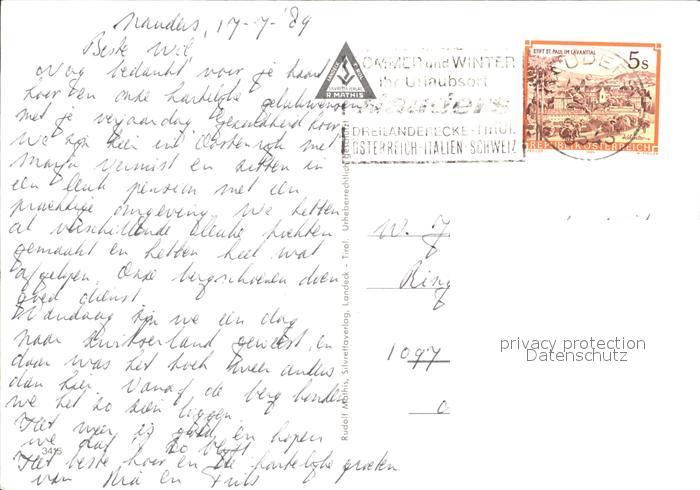 Nauders, 17-7-'89
Beste Wil,
Nog bedankt voor je kaart
hoor en onze hartelijke gelukwensen
met je verjaardag. Gefeliciteerd hoor.
We zijn hier in Oostenrijk met
en zitten in
een leuk pension met een
prachtige omgeving. We hebben
al verschillende leuke tochten
gemaakt en hebben heel wat
afgelopen. Onze bergschoenen doen
goed dienst.
Vandaag zijn we een dag
naar Zwitserland geweest en
daar was het toch weer anders
dan hier. Vanaf de berg konden
we het zo zien liggen.
Het weer is goed en hopen
we dat 't zo blijft
Het beste hoor en de hartelijke groeten
van Ria en Frits
3415
Rudolf Mathis, Silvrettaverlag, Landeck - Tirol. Urheberrechtlich geschützt
LANDECK TIROL
SILVRETTA-VERLAG
R. MATHIS
SOMMER und WINTER
Ihr Urlaubsort
Nauders
DREILÄNDERECKE-TIROL
ÖSTERREICH-ITALIEN-SCHWEIZ
STIFT ST. PAUL IM LAVANTTAL
5s
REPUBLIK ÖSTERREICH
W. J
Ring
1097
privacy protection
Datenschutz